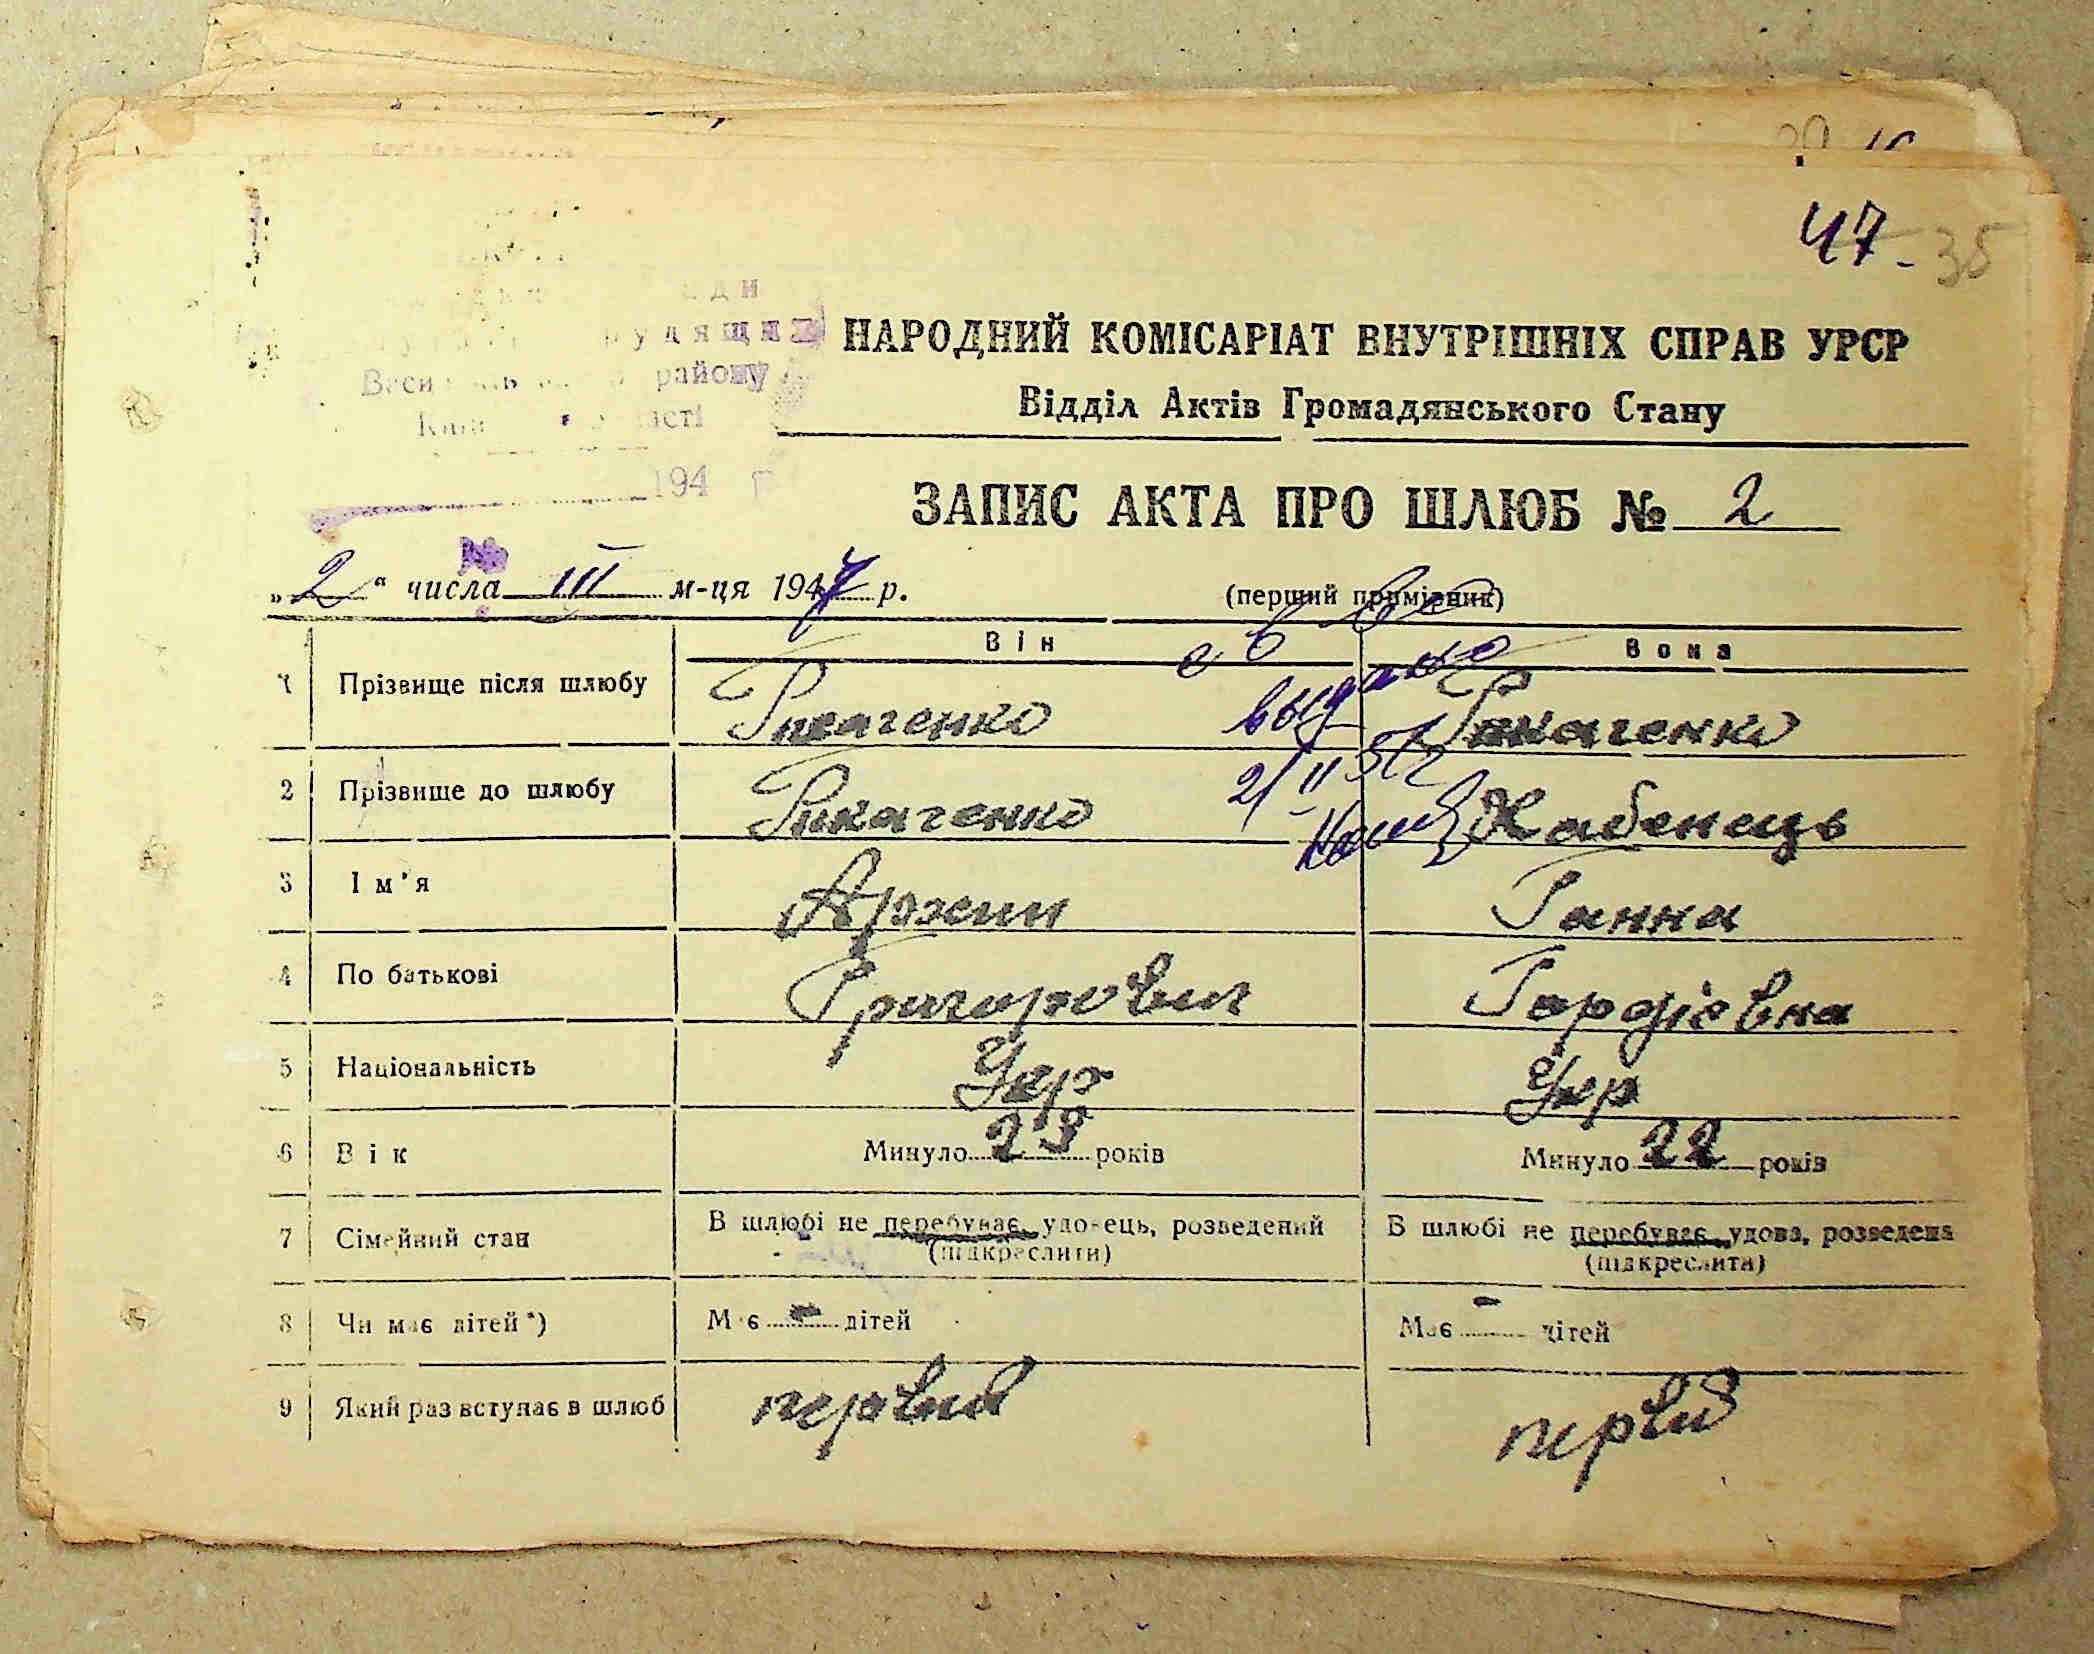 47 - 35
району
194
НАРОДНИЙ КОМІСАРІАТ ВНУТРІШНІХ СПРАВ УРСР
Відділ Актів Громадянського Стану
ЗАПИС АКТА ПРО ШЛЮБ № 2
„2“ числа III м-ця 1947 р.
(перший примірник)
Він
Вона
1 Прізвище після шлюбу
2 Прізвище до шлюбу Хабенець
3 Ім'я Ганна
4 По батькові Григорович Гордієвна
5 Національність Укр Укр
6 Вік Минуло 23 років Минуло 22 років
7 Сімейний стан В шлюбі не перебуває, удовець, розведений В шлюбі не перебуває, удова, розведена
(підкреслити) (підкреслити)
8 Чи має дітей*) Має - дітей Має - дітей
9 Який раз вступає в шлюб первий первий
свво
выдано
21/II